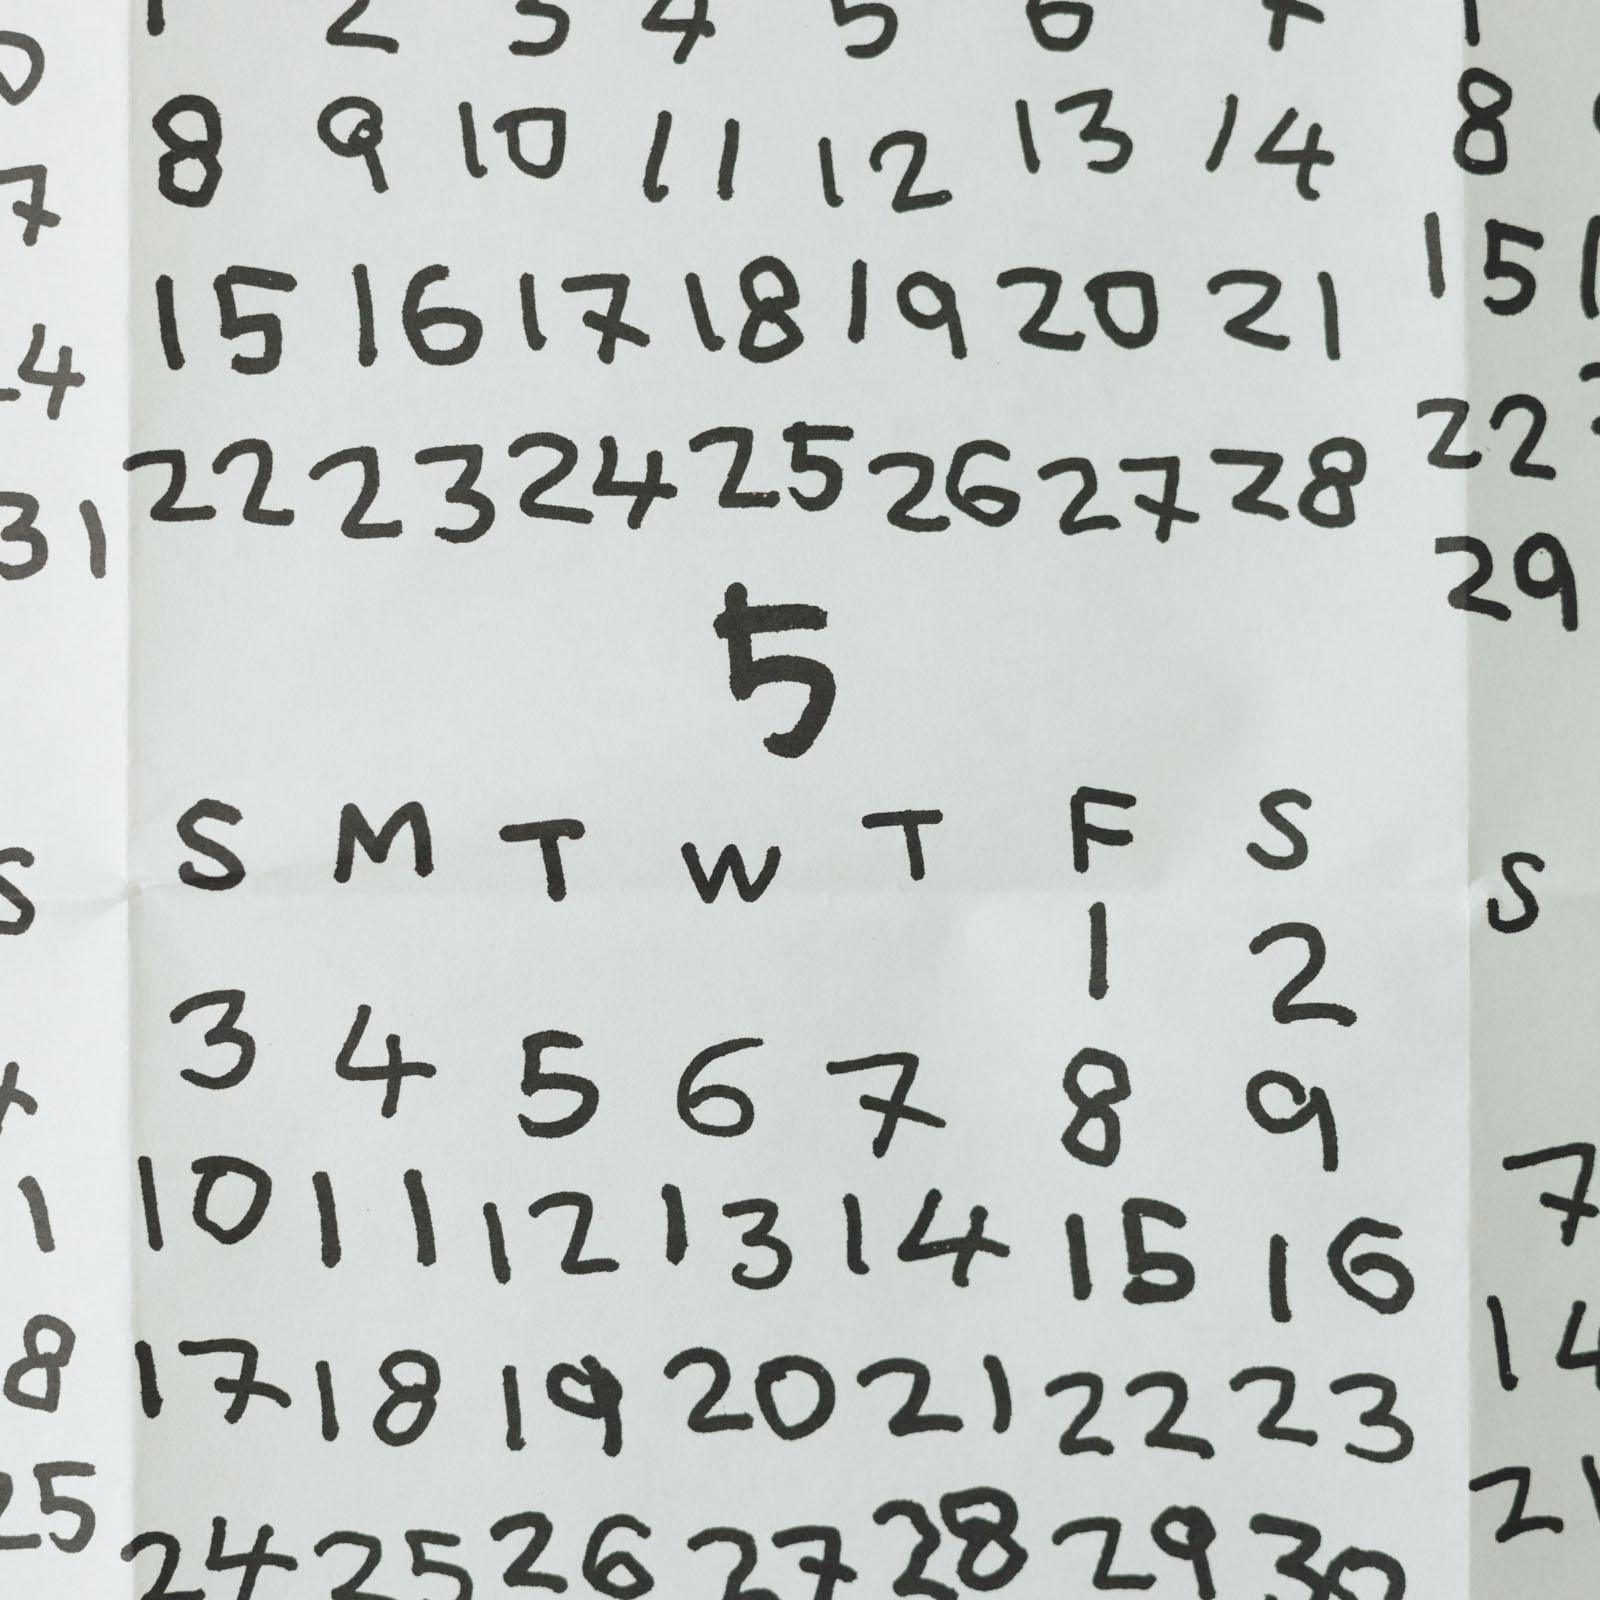 1 2 3 4 5 6 7 1
8 9 10 11 12 13 14 8
7 15 16 17 18 19 20 21 15
22 23 24 25 26 27 28 22
31 29
5
S S M T W T F S S
1 2
3 4 5 6 7 8 9
10 11 12 13 14 15 16 7
1 17 18 19 20 21 22 23 14
8 24 25 26 27 28 29 30
25